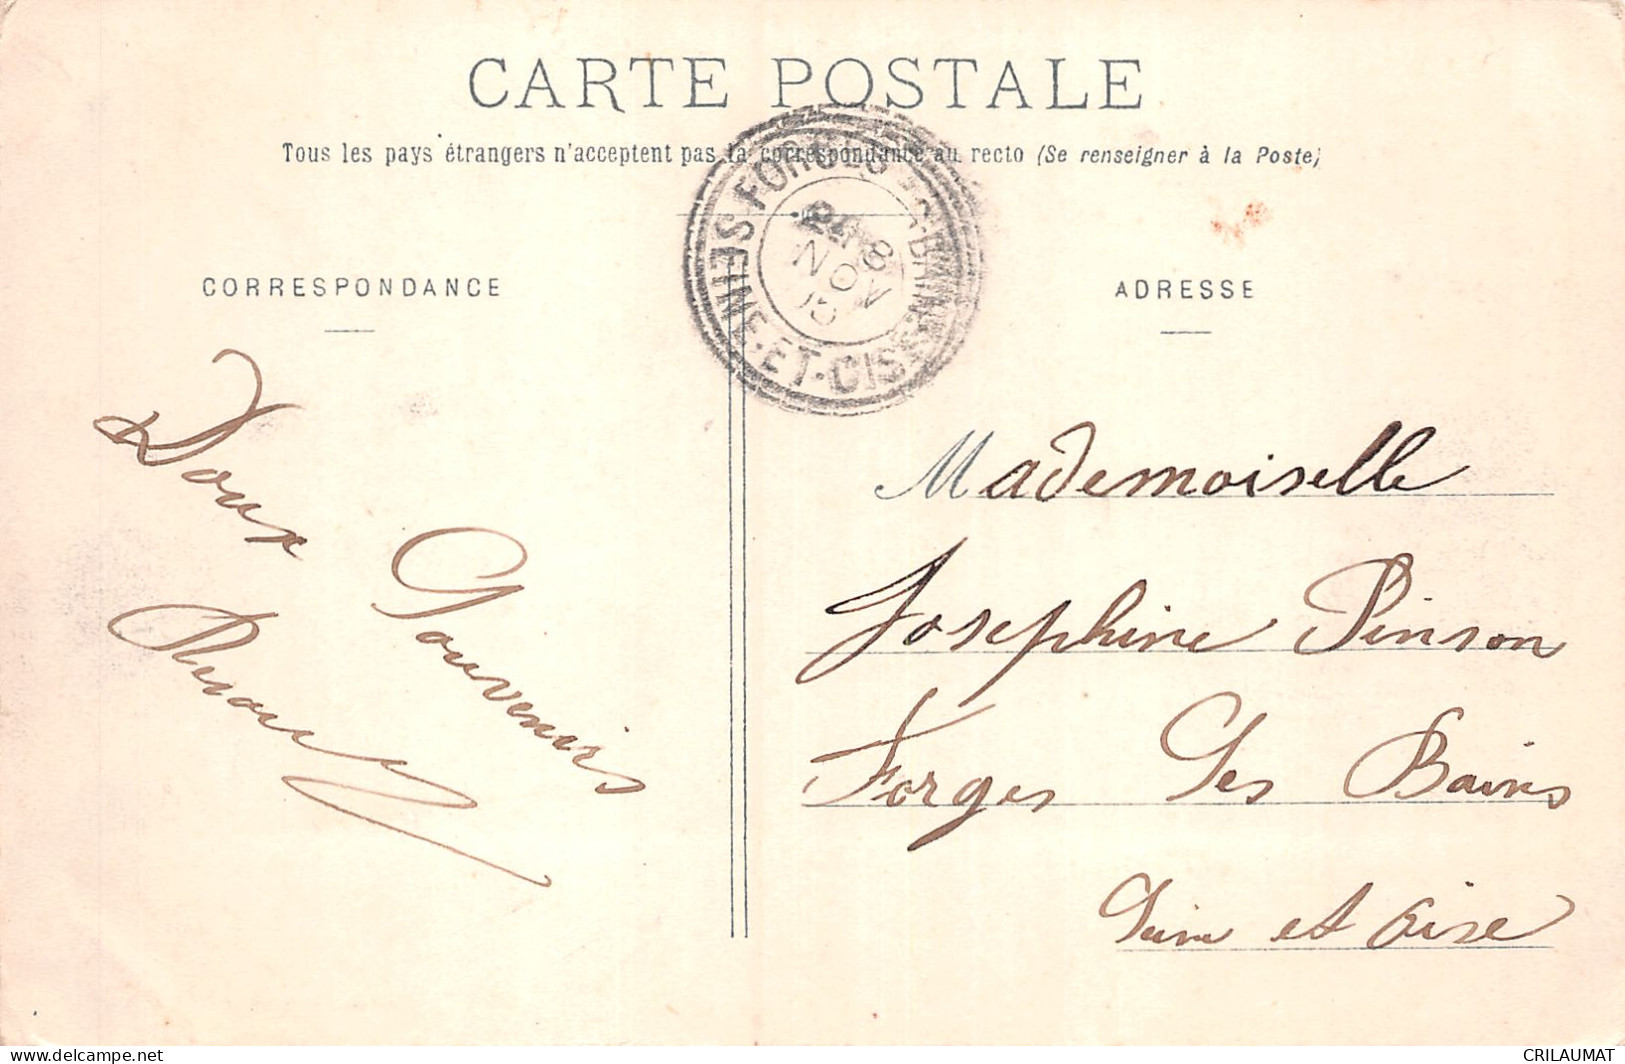 CARTE POSTALE
Tous les pays étrangers n'acceptent pas la correspondance au recto (Se renseigner à la Poste)
FORGES-LES-BAINS
SEINE-ET-OISE
NOV
CORRESPONDANCE
ADRESSE
Doux
Souvenirs
Mademoiselle
Joséphine Pinson
Forges Les Bains
Seine et Oise
Delcampe.net
CRILAUMAT